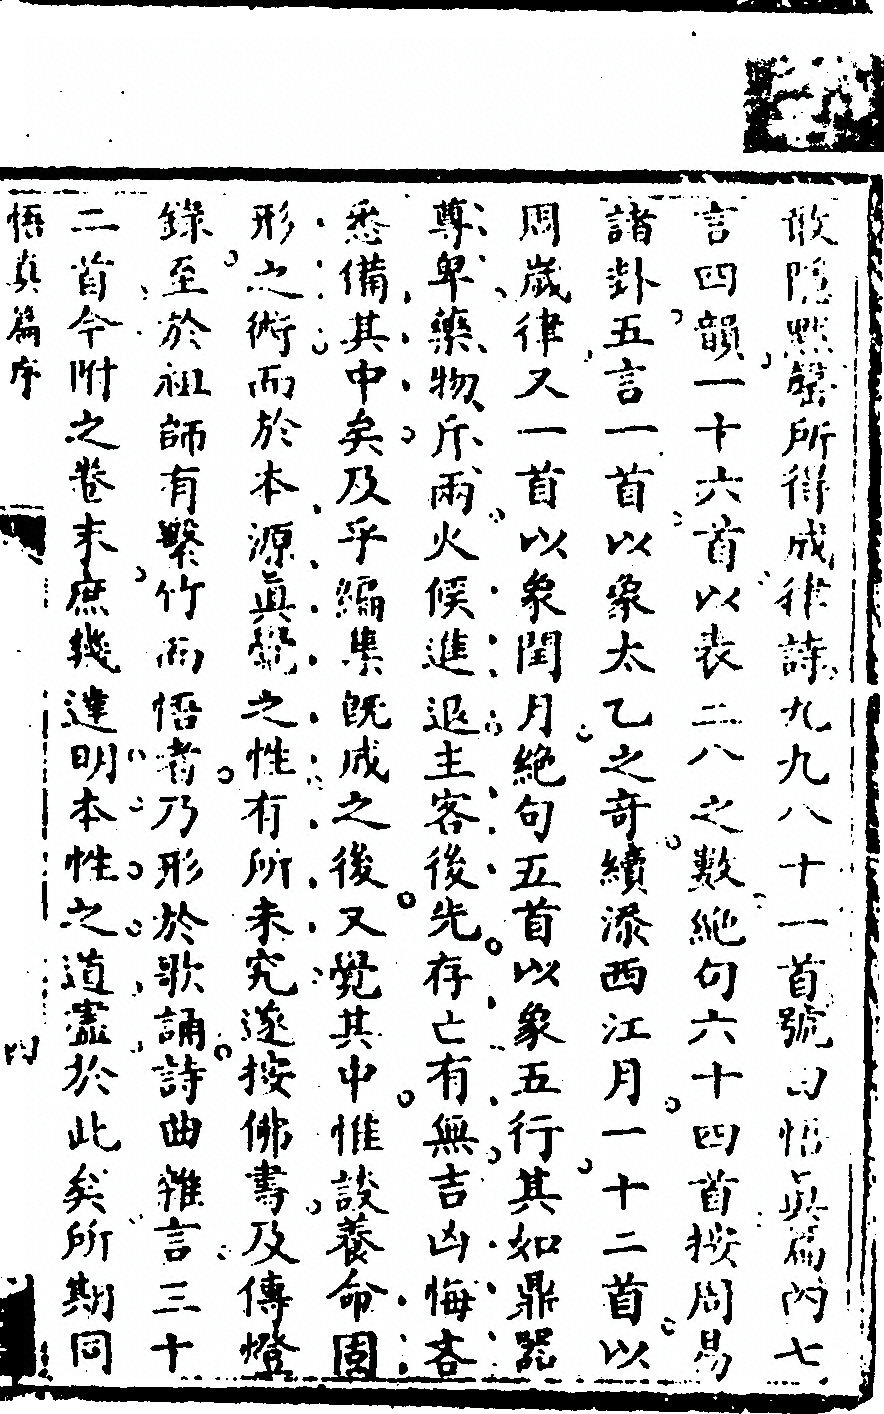 敢隱默罄所得成律詩九九八十一首號曰悟眞篇內七
言四韻一十六首以表二八之數絶句六十四首按周易
諸卦五言一首以象太乙之奇續添西江月一十二首以
周歲律又一首以象閏月絶句五首以象五行其如鼎器
尊卑藥物斤兩火候進退主客後先存亡有無吉凶悔吝
悉備其中矣及乎編集既成之後又覺其中惟談養命固
形之術而於本源眞覺之性有所未究遂按佛書及傳燈
錄至於祖師有擊竹而悟者乃形於歌誦詩曲雜言三十
二首今附之卷末庶幾達明本性之道盡於此矣所期同
悟真篇序
四